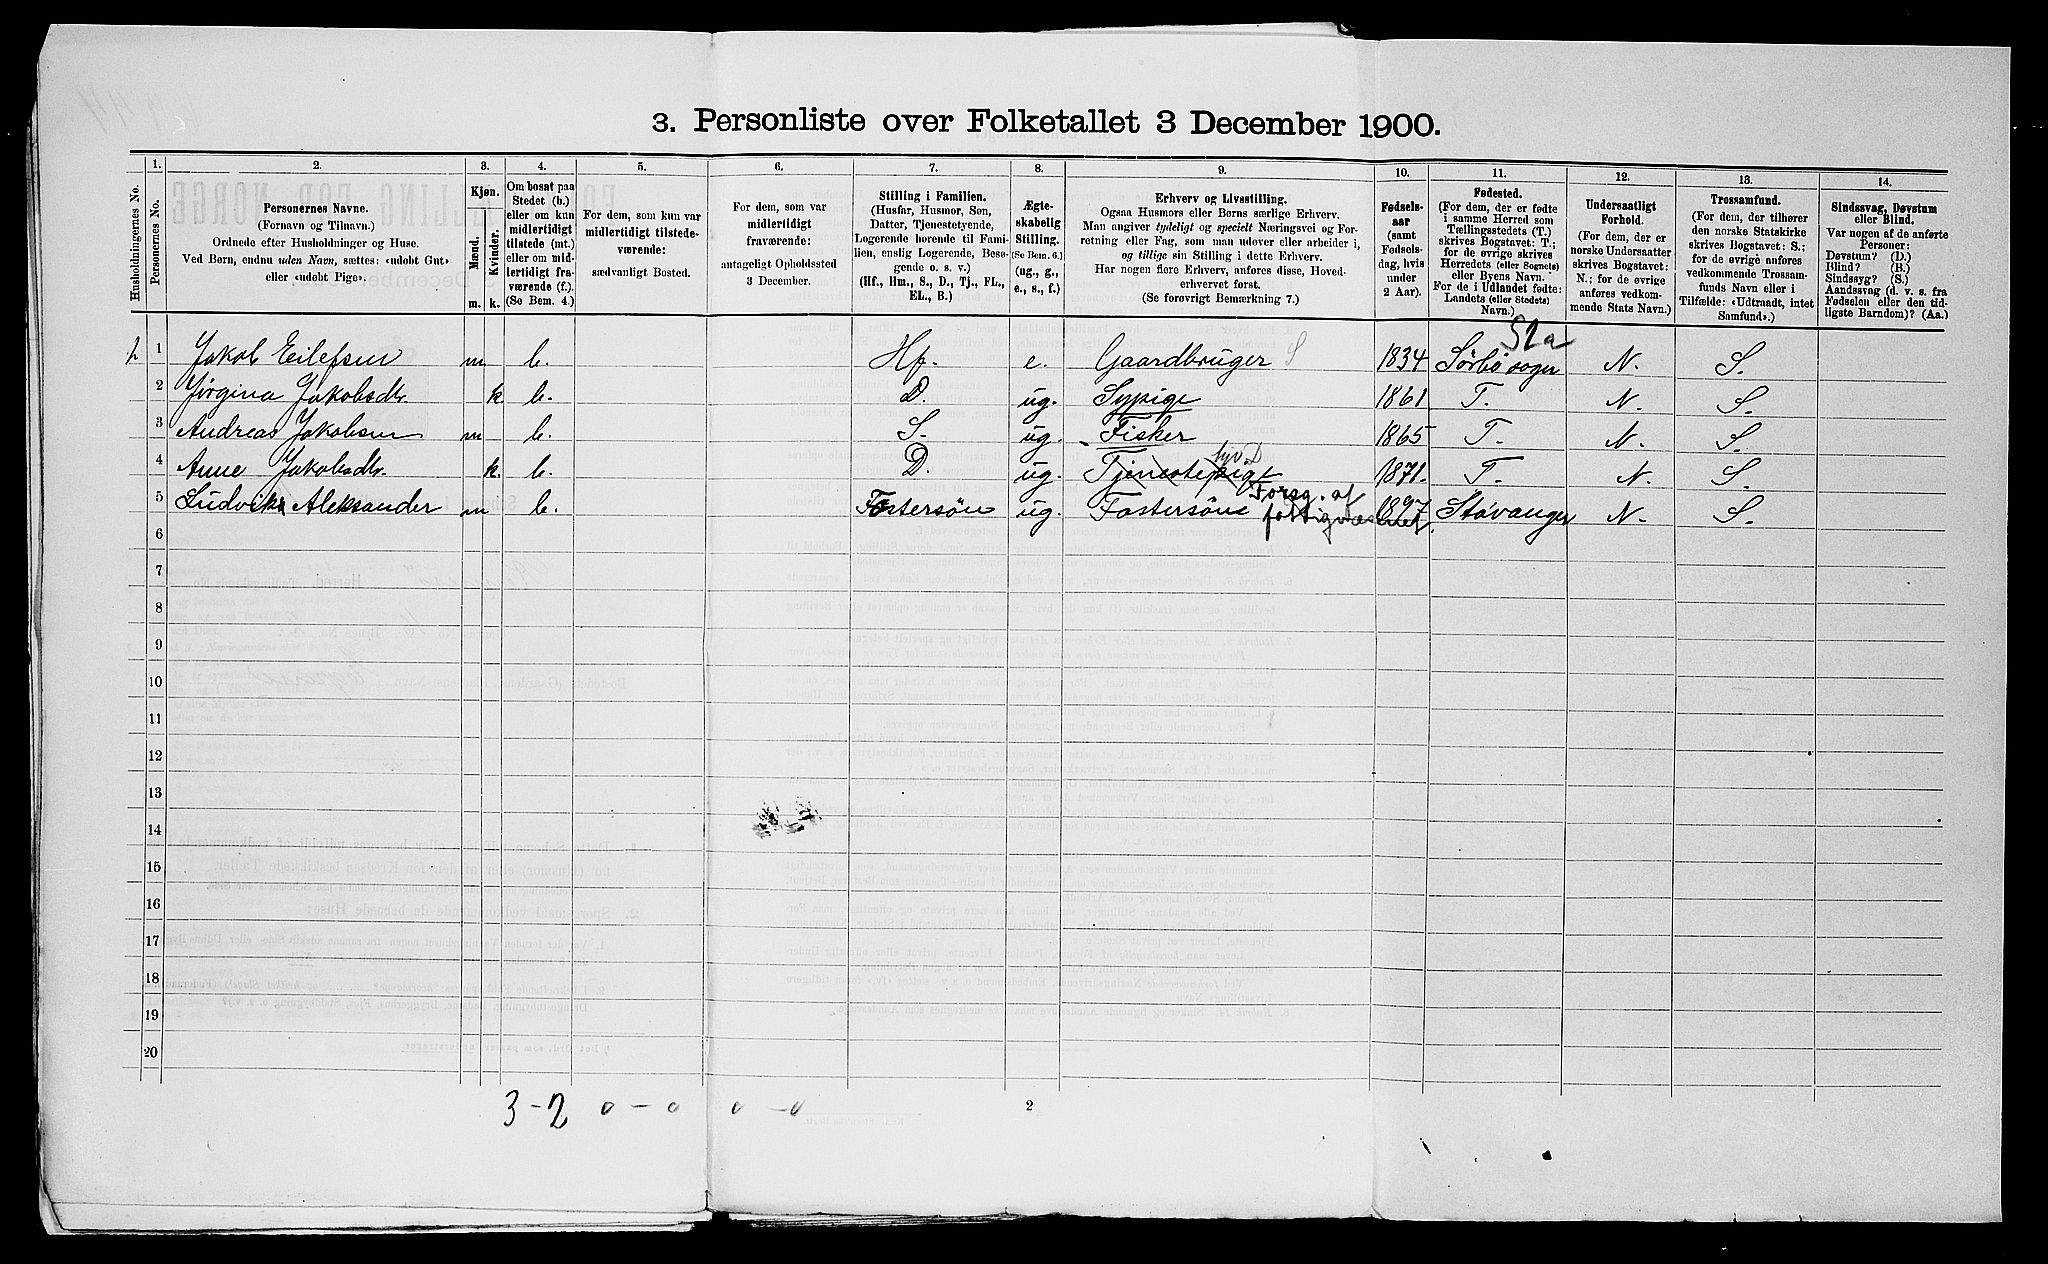 3. Personliste over Folketallet 3 December 1900.
Husholdningernes No.
1.
Personernes No.
2.
Personernes Navne.
(Fornavn og Tilnavn.)
Ordnede efter Husholdninger og Huse.
Ved Børn, endnu uden Navn, sættes: «udøbt Gut»
eller «udøbt Pige».
3.
Kjøn.
Mænd.
Kvinder.
m.
k.
4.
Om bosat paa
Stedet (b.)
eller om kun
midlertidigt
tilstede (mt.)
eller om mid-
lertidigt fra-
værende (f.)
(Se Bem. 4.)
5.
For dem, som kun var
midlertidigt tilstede-
værende:
sædvanligt Bosted.
6.
For dem, som var
midlertidigt
fraværende:
antageligt Opholdssted
3 December.
7.
Stilling i Familien.
(Husfar, Husmor, Søn,
Datter, Tjenestetyende,
Logerende hørende til Fami-
lien, enslig Logerende, Besø-
gende o. s. v.)
(Hf., Hm., S., D., Tj., FL.,
EL., B.)
8.
Ægte-
skabelig
Stilling.
(Se Bem. 6.)
(ug., g.,
e., s., f.)
9.
Erhverv og Livsstilling.
Ogsaa Husmors eller Børns særlige Erhverv.
Man angiver tydeligt og specielt Næringsvei og For-
retning eller Fag, som man udøver eller arbeider i,
og tillige sin Stilling i dette Erhverv.
Har nogen flere Erhverv, anføres disse, Hoved-
erhvervet først.
(Se forøvrigt Bemærkning 7.)
10.
Fødsels-
aar
(samt
Fødsels-
dag, hvis
under
2 Aar).
11.
Fødested.
(For dem, der er fødte
i samme Herred som
Tællingsstedets (T.)
skrives Bogstavet: T.;
for de øvrige skrives
Herredets (eller Sognets)
eller Byens Navn.
For de i Udlandet fødte:
Landets (eller Stedets)
Navn.)
12.
Undersaatligt
Forhold.
(For dem, der er
norske Undersaatter
skrives Bogstavet:
N.; for de øvrige
anføres vedkom-
mende Stats Navn.)
13.
Trossamfund.
(For dem, der tilhører
den norske Statskirke
skrives Bogstavet: S.;
for de øvrige anføres
vedkommende Trossam-
funds Navn eller i
Tilfælde: «Udtraadt, intet
Samfund».)
14.
Sindssvag, Døvstum
eller Blind.
Var nogen af de anførte
Personer:
Døvstum? (D.)
Blind? (B.)
Sindssyg? (S.)
Aandssvag (d. v. s. fra
Fødselen eller den tid-
ligste Barndom)? (Aa.)
1 Jakob Eilefsen m b. Hf. e. Gaardbruger S 1834 Sørbø sogn N. S.
2 Jørgina Jakobsdtr. k b. D. ug. Sypige 1861 T. N. S.
3 Andreas Jakobsen m b. S. ug. Fisker 1865 T. N. S.
4 Anne Jakobsdtr. k. b. D. ug. Tjenestepige 1871. T. N. S.
5 Ludvik Aleksander m b. Fostersøn ug. Fostersøn Forsg. af fattigvæsenet 1897. Stavanger N. S.
6
7
8
9
10
11
12
13
14
15
16
17
18
19
20
3-2 0-0 0-0
2